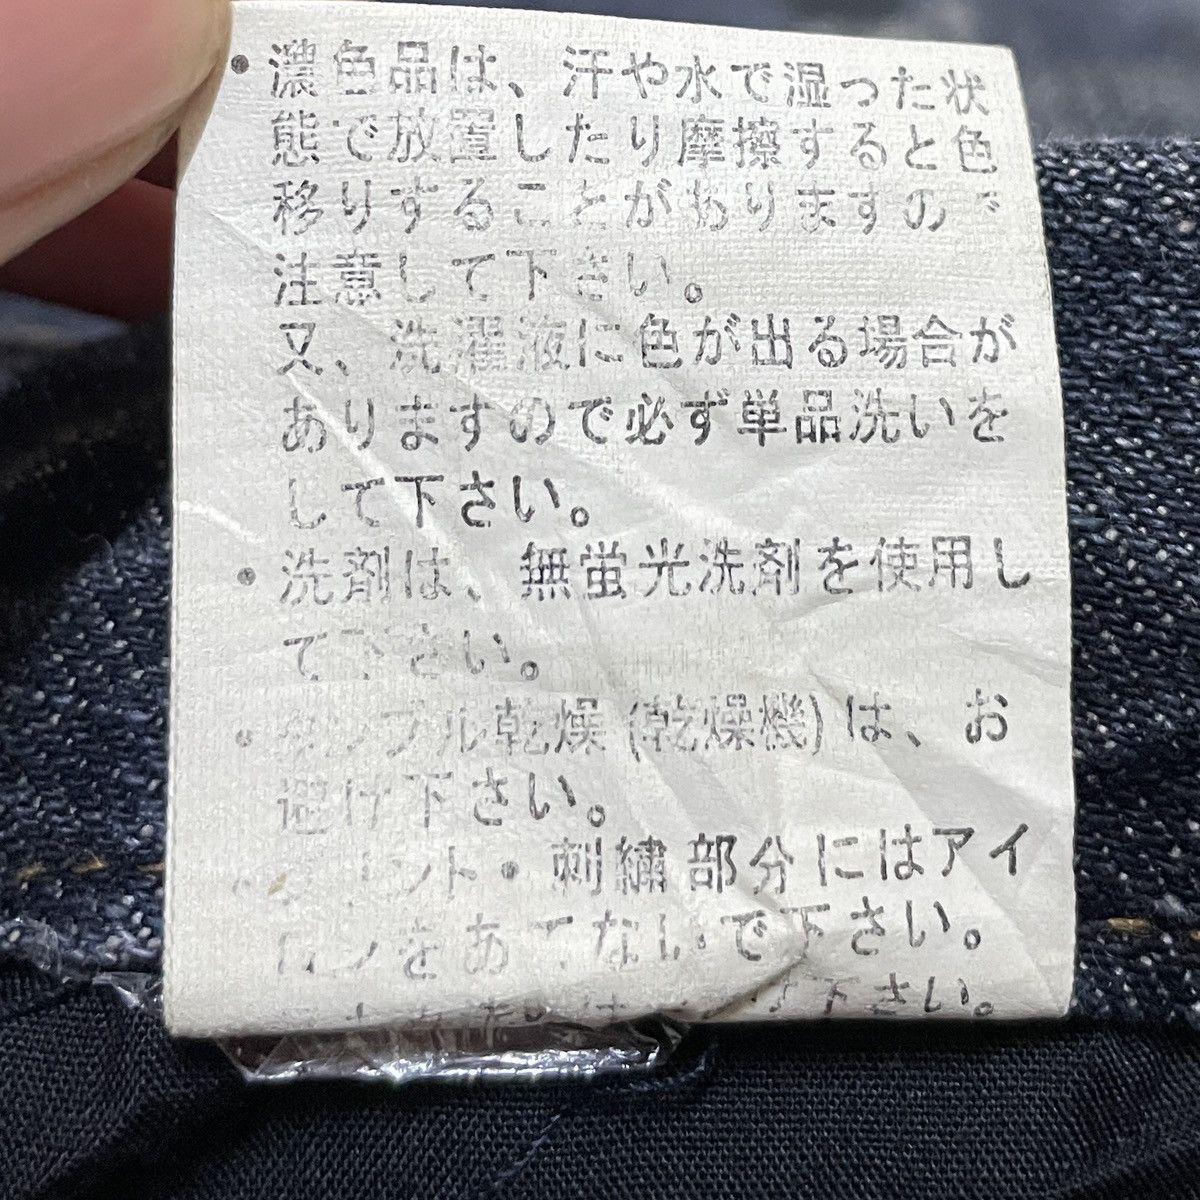 ・濃色品は、汗や水で湿った状
態で放置したり摩擦すると色
移りすることがありますので
注意して下さい。
又、洗濯液に色が出る場合が
ありますので必ず単品洗いを
して下さい。
・洗剤は、無蛍光洗剤を使用し
て下さい。
・タンブル乾燥(乾燥機)は、お
避け下さい。
・プリント・刺繍部分にはアイ
ロンをあてないで下さい。
下さい。